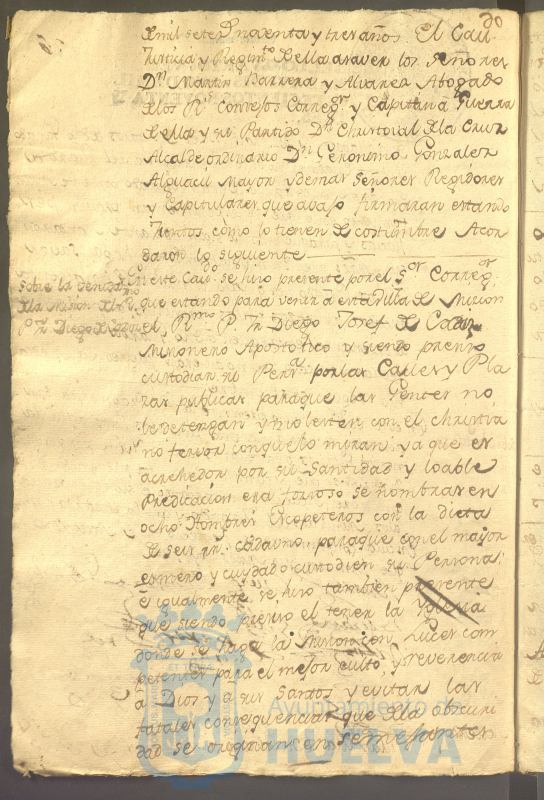 30
de mil setez.s noventa y tres años. El Cavl.
Justicia y Regim.to de ella a saver los señores
D.n Martin Barrera y Alvarez Abogado
de los R.s Consejos Correg.or y Capitan a Guerra
de ella y su Partido D.n Christoval de la Cruz
Alcalde ordinario D.n Geronimo Gonzalez
Alguacil Mayor y demas señores Regidores
y Capitulares que avajo firmaran estando
Juntos como lo tienen de costumbre Acor
daron lo siguiente
sobre la venida
de la Mision del R.
P. Fr. Diego de Cadiz
En este Cav.do se hizo presente por el S.or Correg.or
que estando para venir a esta Villa de Mision
el R.mo P. Fr. Diego Josef de Cadiz
Misionero Apostolico y siendo preciso
custodiar su Pers.a por las Calles y Pla
zas publicas para que las Gentes no
le detengan y molesten con el christia
no fervor con que lo miran ya que es
acrehedor por su Santidad y loable
Predicacion era forzoso se nombrasen
ocho Hombres Escopeteros con la dieta
de seis rr. cada uno para que con el maior
esmero y cuydado custodien su Persona;
e igualmente se hizo tambien presente
que siendo preciso el tener la Yglesia
donde se haga la Mision con Luces com
petentes para el mejor culto, y reverencia
a Dios y a sus Santos y evitar las
fatales consequencias que de la obscuri
dad se originan en semejantes
Ayuntamiento de
HUELVA